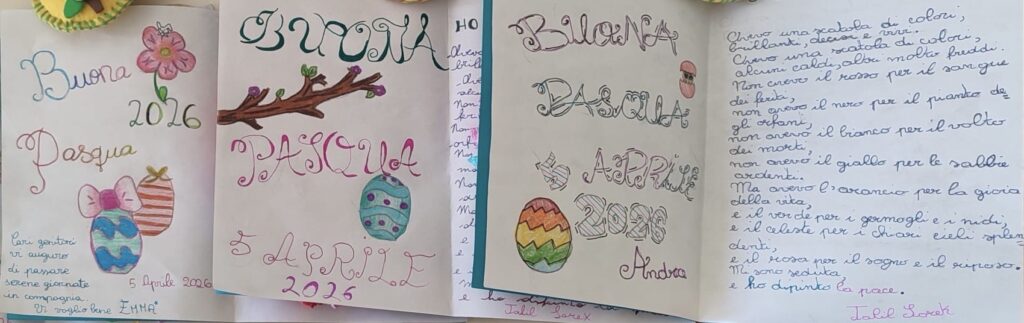 Buona
2026
Pasqua
Cari genitori
vi auguro
di passare
serene giornate
in compagnia.
Vi voglio bene EMMA
5 Aprile 2026
BUONA
PASQUA
5 APRILE
2026
HO
e ho dipinto
Talil Sorek
BUONA
PASQUA
APRILE
2026
Andrea
e ho dipinto
Avevo una scatola di colori,
brillanti, decisi e vivi.
Avevo una scatola di colori,
alcuni caldi, altri molto freddi.
Non avevo il rosso per il sangue
dei feriti,
non avevo il nero per il pianto de=
gli orfani,
non avevo il bianco per il volto
dei morti,
non avevo il giallo per le sabbie
ardenti.
Ma avevo l'arancio per la gioia
della vita,
e il verde per i germogli e i nidi,
e il celeste per i chiari cieli splen
denti,
e il rosa per il sogno e il riposo.
Mi sono seduta,
e ho dipinto la pace.
Talil Sorek